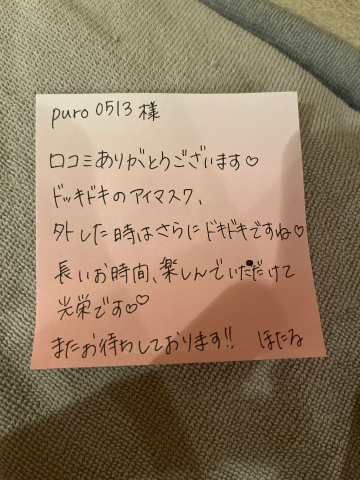 puro 0513 様
口コミありがとうございます♡
ドッキドキのアイマスク、
外した時はさらにドキドキですね♡
長いお時間、楽しんでいただけて
光栄です♡♡
またお待ちしております!! ほたる